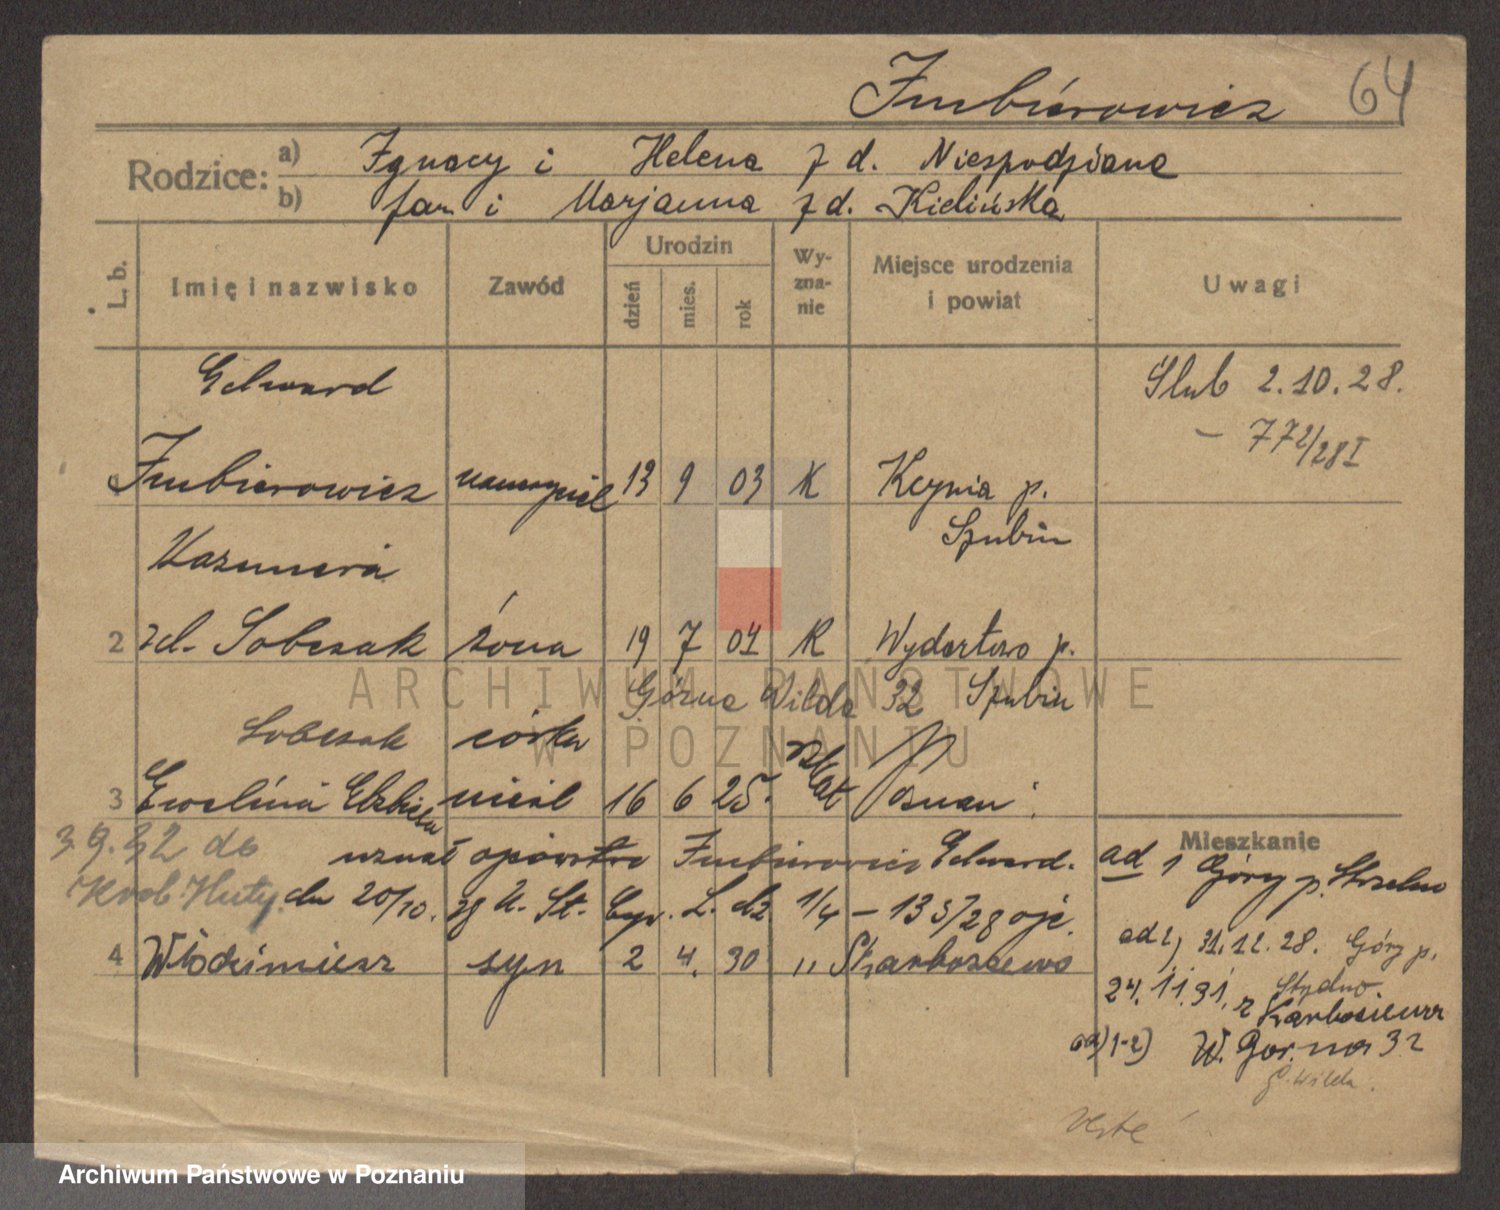 Imbierowicz 64
Rodzice: a) Ignacy i Helena z d. Niespodziana
b) Jan i Marjanna z d. Kielińska
L. b. Imię i nazwisko Zawód Urodzin dzień mies. rok Wy-zna-nie Miejsce urodzenia i powiat Uwagi
Edward Ślub 2.10.28.
– 772/28 I
Imbierowicz nauczyciel 13 9 03 K Kcynia p.
Szubin
Kazimiera
2 zd. Sobczak żona 19 7 04 K Wydartowo p.
Górna Wilda 32 Szubin
Sobczak córka
3 Ewelina Elżbieta nieśl 16 6 25. Poznań
Mieszkanie
3.9.32 do uznał ojcowstwo Imbierowicz Edward. ad 1 Góry p. Strzelno
dn 20/10. zg U. St. Cyw. L. dz 1/4 – 135/28
ad 2) 31.12.28. Góry p.
4 Włodzimierz syn 2 4. 30 " Skarboszewo
24.11.31. z
ad) 1-2) W. Gór. na 32
G. Wilda.
ARCHIWUM PAŃSTWOWE
W POZNANIU
Archiwum Państwowe w Poznaniu